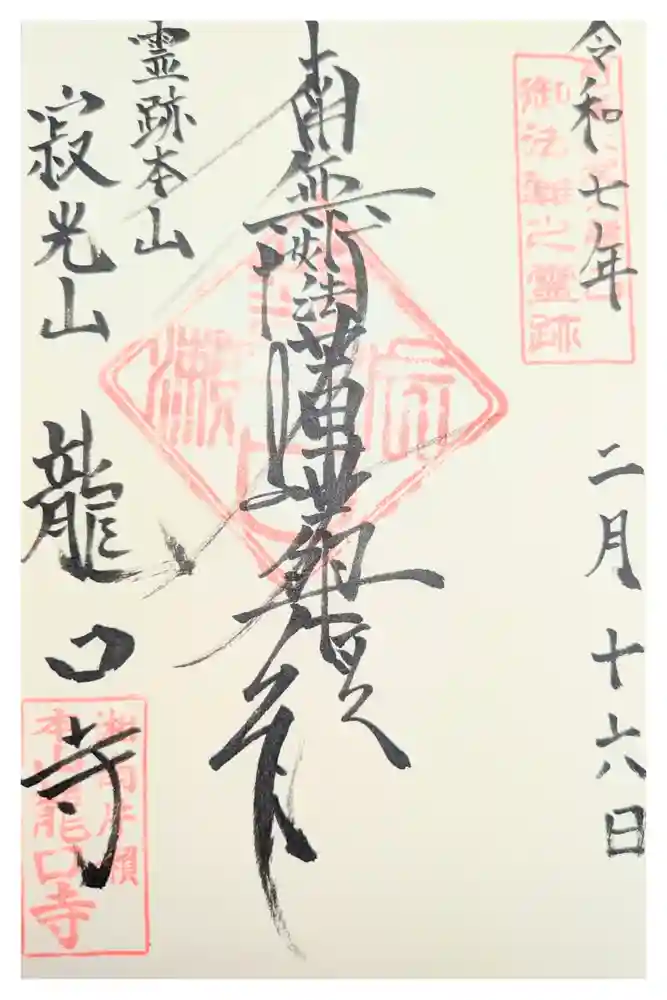 令和七年 二月十六日
御法難之霊跡
南無妙法蓮華経
霊跡本山
寂光山 龍口寺
湘南片瀬
本山龍口寺